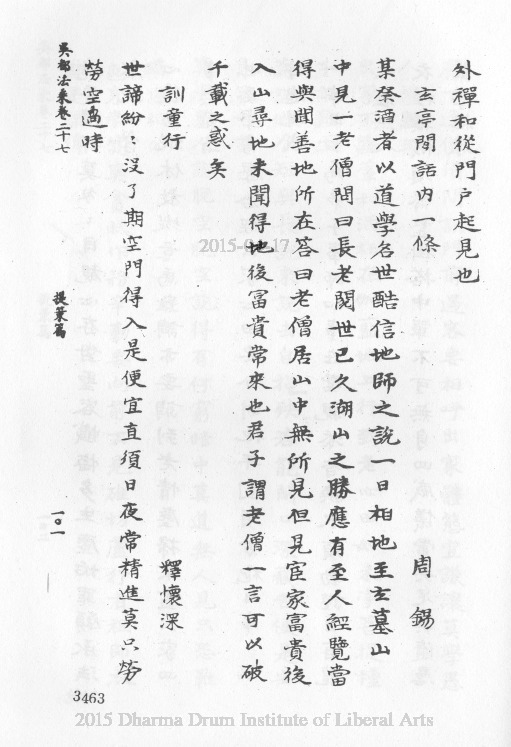 外禪和從門户起見也
玄亭閒話内一條 周錫
某祭酒者以道學名世酷信地師之說一日相地至玄墓山
中見一老僧問曰長老閱世已久湖山之勝應有至人經覽當
得與聞善地所在答曰老僧居山中無所見但見宦家富貴後
入山尋地未聞得地後冨貴常來也君子謂老僧一言可以破
千載之惑矣
訓童行 釋懷深
世諦紛〻没了期空門得入是便宜直須日夜常精進莫只勞
勞空過時
吳都法乘卷二十七 提策篇 一〇一
3463
2015 Dharma Drum Institute of Liberal Arts